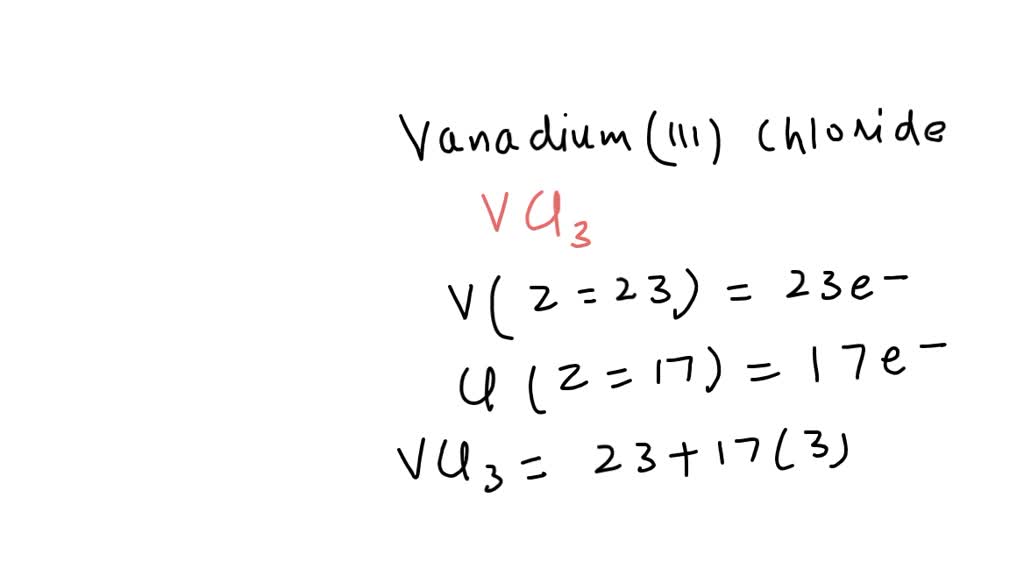 Vanadium(III) chloride
VCl₃
V(Z=23) = 23e⁻
Cl(Z=17) = 17e⁻
VCl₃ = 23+17(3)